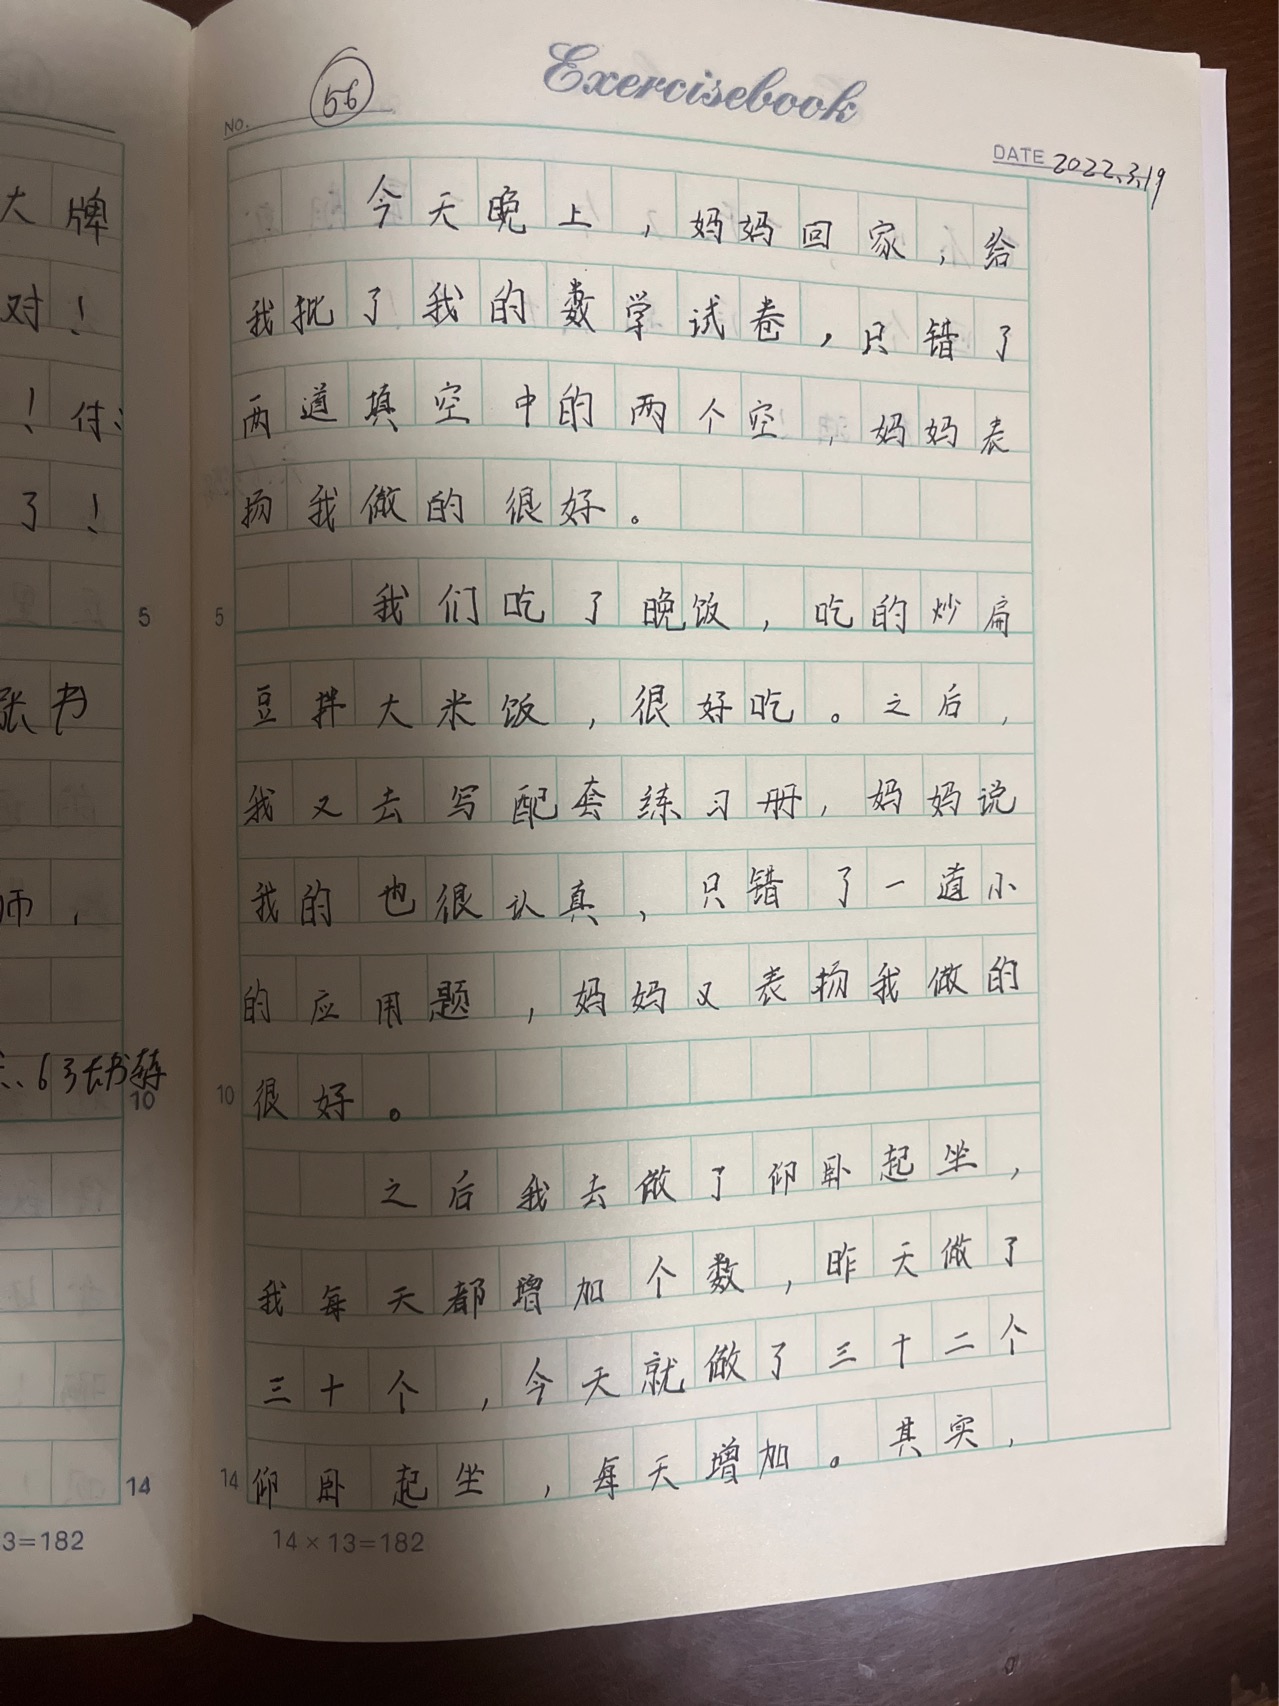 大牌
对！
！付、
了！
5
张书
师，
6张书转
10
14
3=182
Exercisebook
NO. 56
DATE 2022.3.19
今天晚上，妈妈回家，给
我批了我的数学试卷，只错了
两道填空中的两个空，妈妈表
扬我做的很好。
5 我们吃了晚饭，吃的炒扁
豆拌大米饭，很好吃。之后，
我又去写配套练习册，妈妈说
我的也很认真，只错了一道小
的应用题，妈妈又表扬我做的
10 很好。
之后我去做了仰卧起坐，
我每天都增加个数，昨天做了
三十个，今天就做了三十二个
14 仰卧起坐，每天增加。其实，
14×13=182